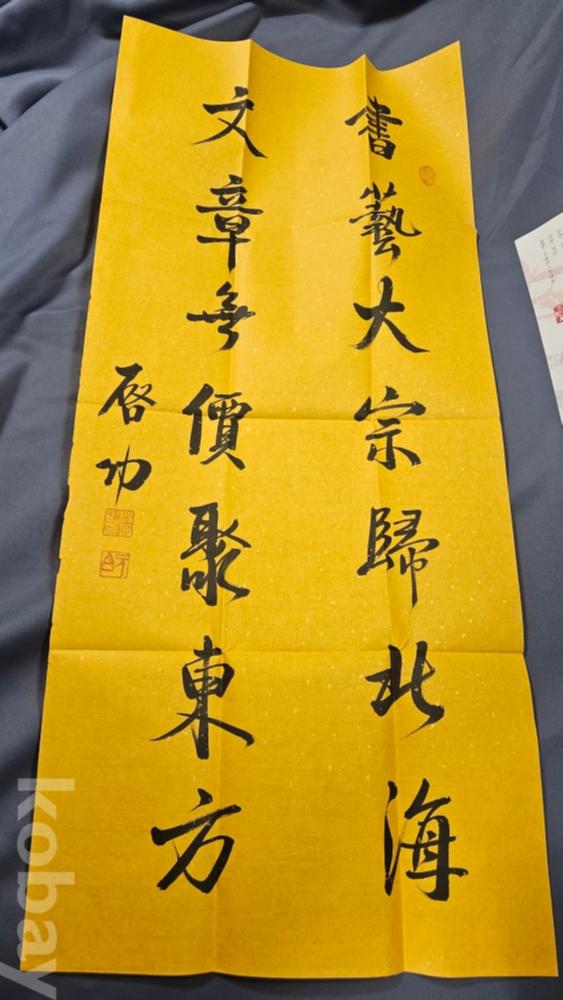 書藝大宗歸北海
文章無價聚東方
啓功
kobay